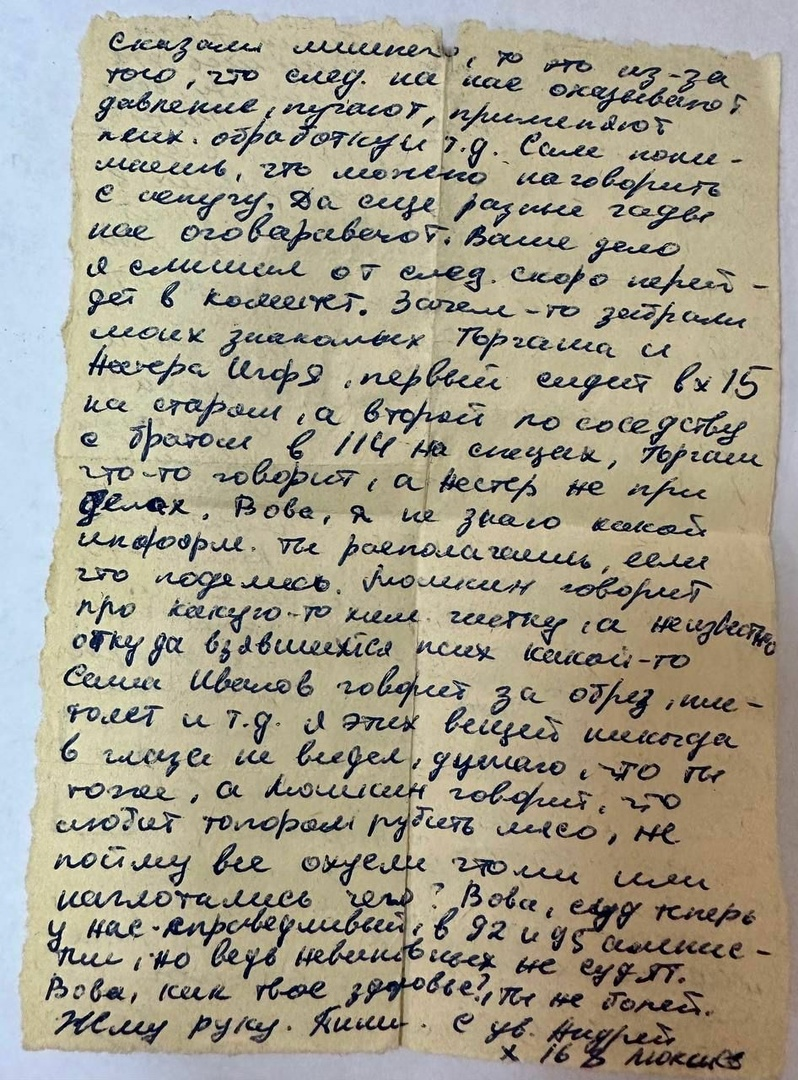 сказали лишнего, то это из-за
того, что след. на нас оказывают
давление, пугают, применяют
псих. обработку и т.д. Сам пони-
маешь, что можно наговорить
с испугу. Да еще разные гады
нас оговаравают. Ваше дело
я слышал от след. скоро перей-
дет в комитет. Зачем-то забрали
моих знакомых Торгаша и
Нестера Игоря, первый сидит в х 15
на старом, а второй по соседству
с братом в 114 на спецах, Торгаш
что-то говорит, а Нестер не при
делах. Вова, я не знаю какой
информ. ты располагаешь, если
что поделись. Мошкин говорит
про какую-то хим. чистку, а неизвестно
откуда взявшийся псих какой-то
Саша Иванов говорит за обрез, пис-
толет и т.д. Я этих вещей никогда
в глаза не видел, думаю, что ты
тоже, а Мошкин говорит, что
любит топором рубить мясо, не
пойму все охуели что ли или
наглотались чего? Вова, суд теперь
у нас справедливый, в 92 и 95 амнис-
тии, но ведь невиновных не судят.
Вова, как твое здоровье?, Ты не болей.
Жму руку. Пиши. С ув. Андрей
х 16